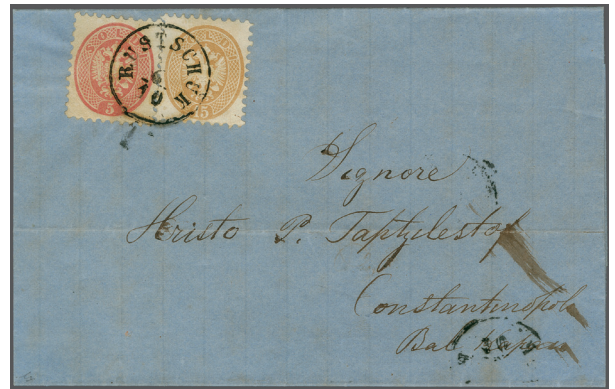 SOLDI SOLDI
RUSTSCHUK
5 15
Signore
Hristo P. Taptylestof
Constantinopoli
Bal Kapan